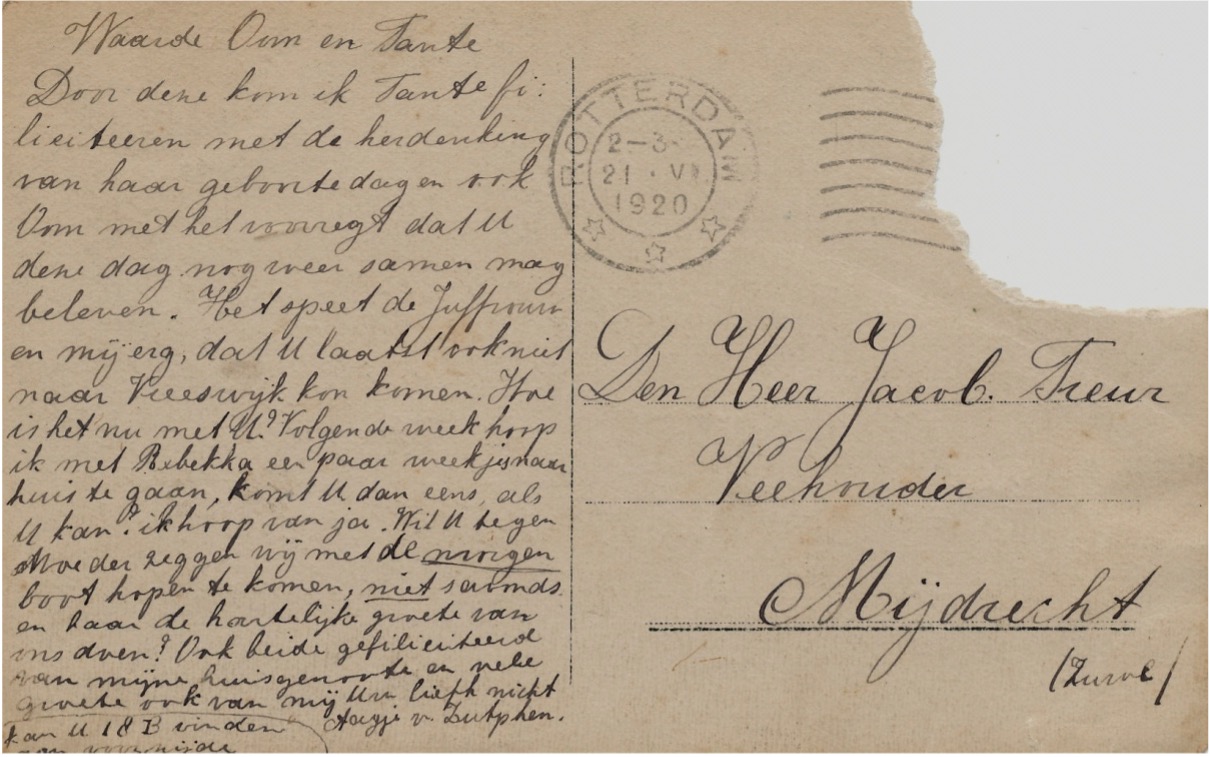 Waarde Oom en Tante
Door deze kom ik Tante fi:
liciteeren met de herdenking
van haar geboortedag en ook
Oom met het voorregt dat U
deze dag nog weer samen mag
beleven. Het speet de Juffrouw
en mij erg, dat U laatst ook niet
naar Vreeswijk kon komen. Hoe
is het nu met U? Volgende week hoop
ik met Rebekka een paar weekjes naar
huis te gaan, komt U dan eens, als
U kan? ik hoop van ja. Wil U tegen
Moeder zeggen wij met de morgen
boot hopen te komen, niet savonds.
en haar de hartelijke groete van
ons doen? Ook beide gefiliciteerd
van mijne huisgenoote en vele
groete ook van mij Uw liefh nicht
Aagje v. Zutphen.
kan U 18 B vinden
ROTTERDAM
2-3
21 · VI
1920
Den Heer Jacob. Treur
Veehouder
Mijdrecht
(Zuwe)